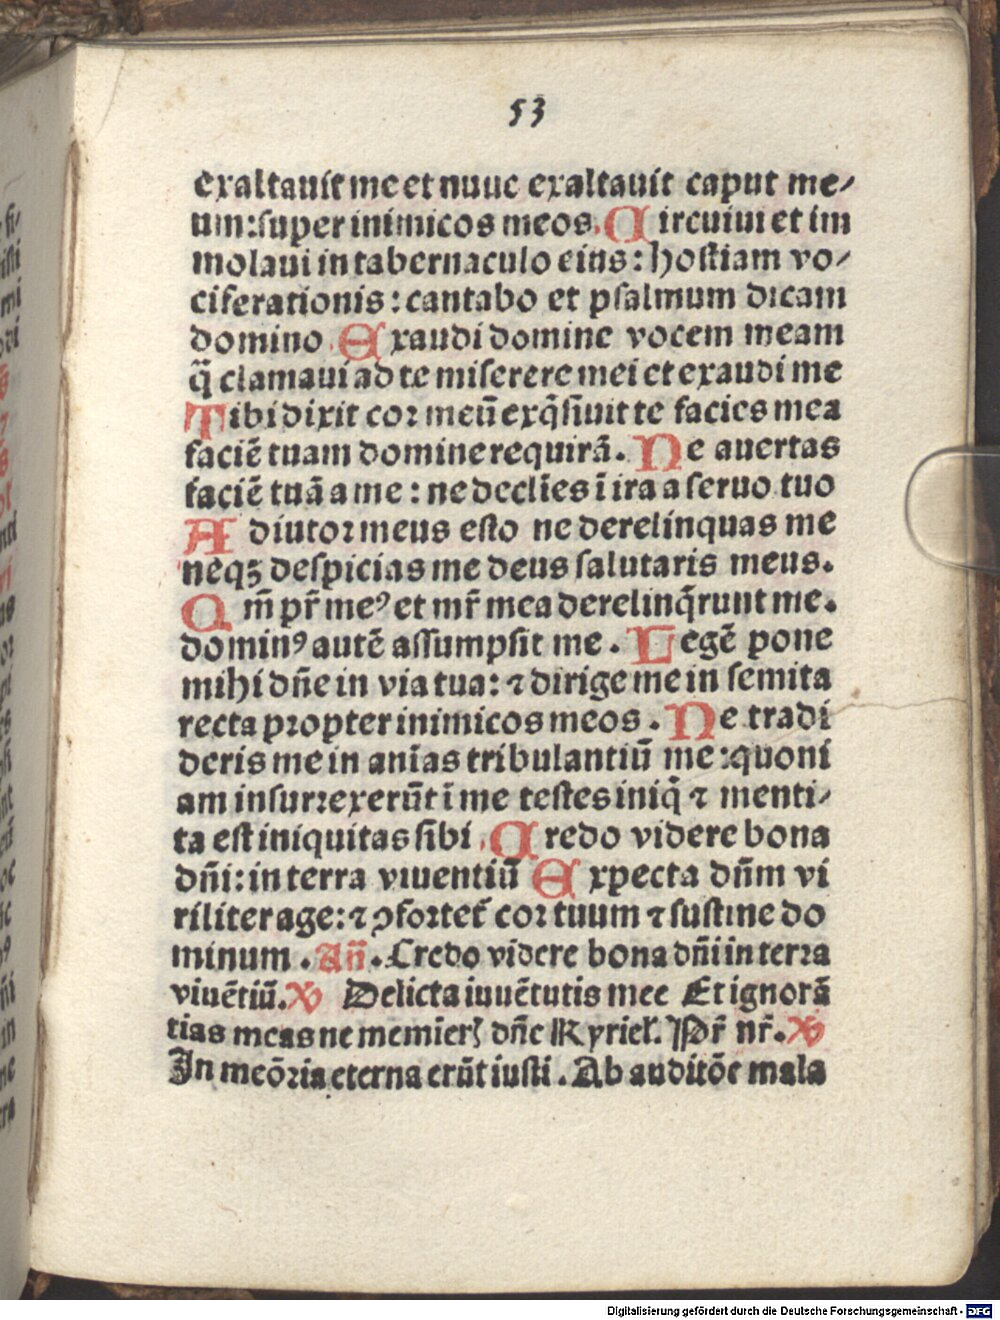 53
exaltauit me et nunc exaltauit caput me⸗
um: super inimicos meos. Circuiui et im
molaui in tabernaculo eius: hostiam vo⸗
ciferationis: cantabo et psalmum dicam
domino. Exaudi domine vocem meam
q̄ clamaui ad te miserere mei et exaudi me
Tibi dixit cor meū exq̄siuit te facies mea
faciē tuam domine requirā. Ne auertas
faciē tuā a me: ne declies ī ira a seruo tuo
Adiutor meus esto ne derelinquas me
neqꝫ despicias me deus salutaris meus.
Qm̄ pr̄ meꝰ et mr̄ mea derelinq̄runt me.
dominꝰ autē assumpsit me. Legē pone
mihi dn̄e in via tua: ⁊ dirige me in semita
recta propter inimicos meos. Ne tradi
deris me in anīas tribulantiū me: quoni
am insurrexerūt ī me testes iniq̄ ⁊ menti⸗
ta est iniquitas sibi. Credo videre bona
dn̄i: in terra viuentiū Expecta dn̄m vi
riliter age: ⁊ ꝯfortet᷑ cor tuum ⁊ sustine do
minum. An̄. Credo videre bona dn̄i in terra
viuētiū. ℣ Delicta iuuētutis mee Et ignorā
tias meas ne memīerꝭ dn̄e Kyriel'. Pr̄ nr̄. ℣
In meōria eterna erūt iusti. Ab auditōe mala
Digitalisierung gefördert durch die Deutsche Forschungsgemeinschaft - DFG